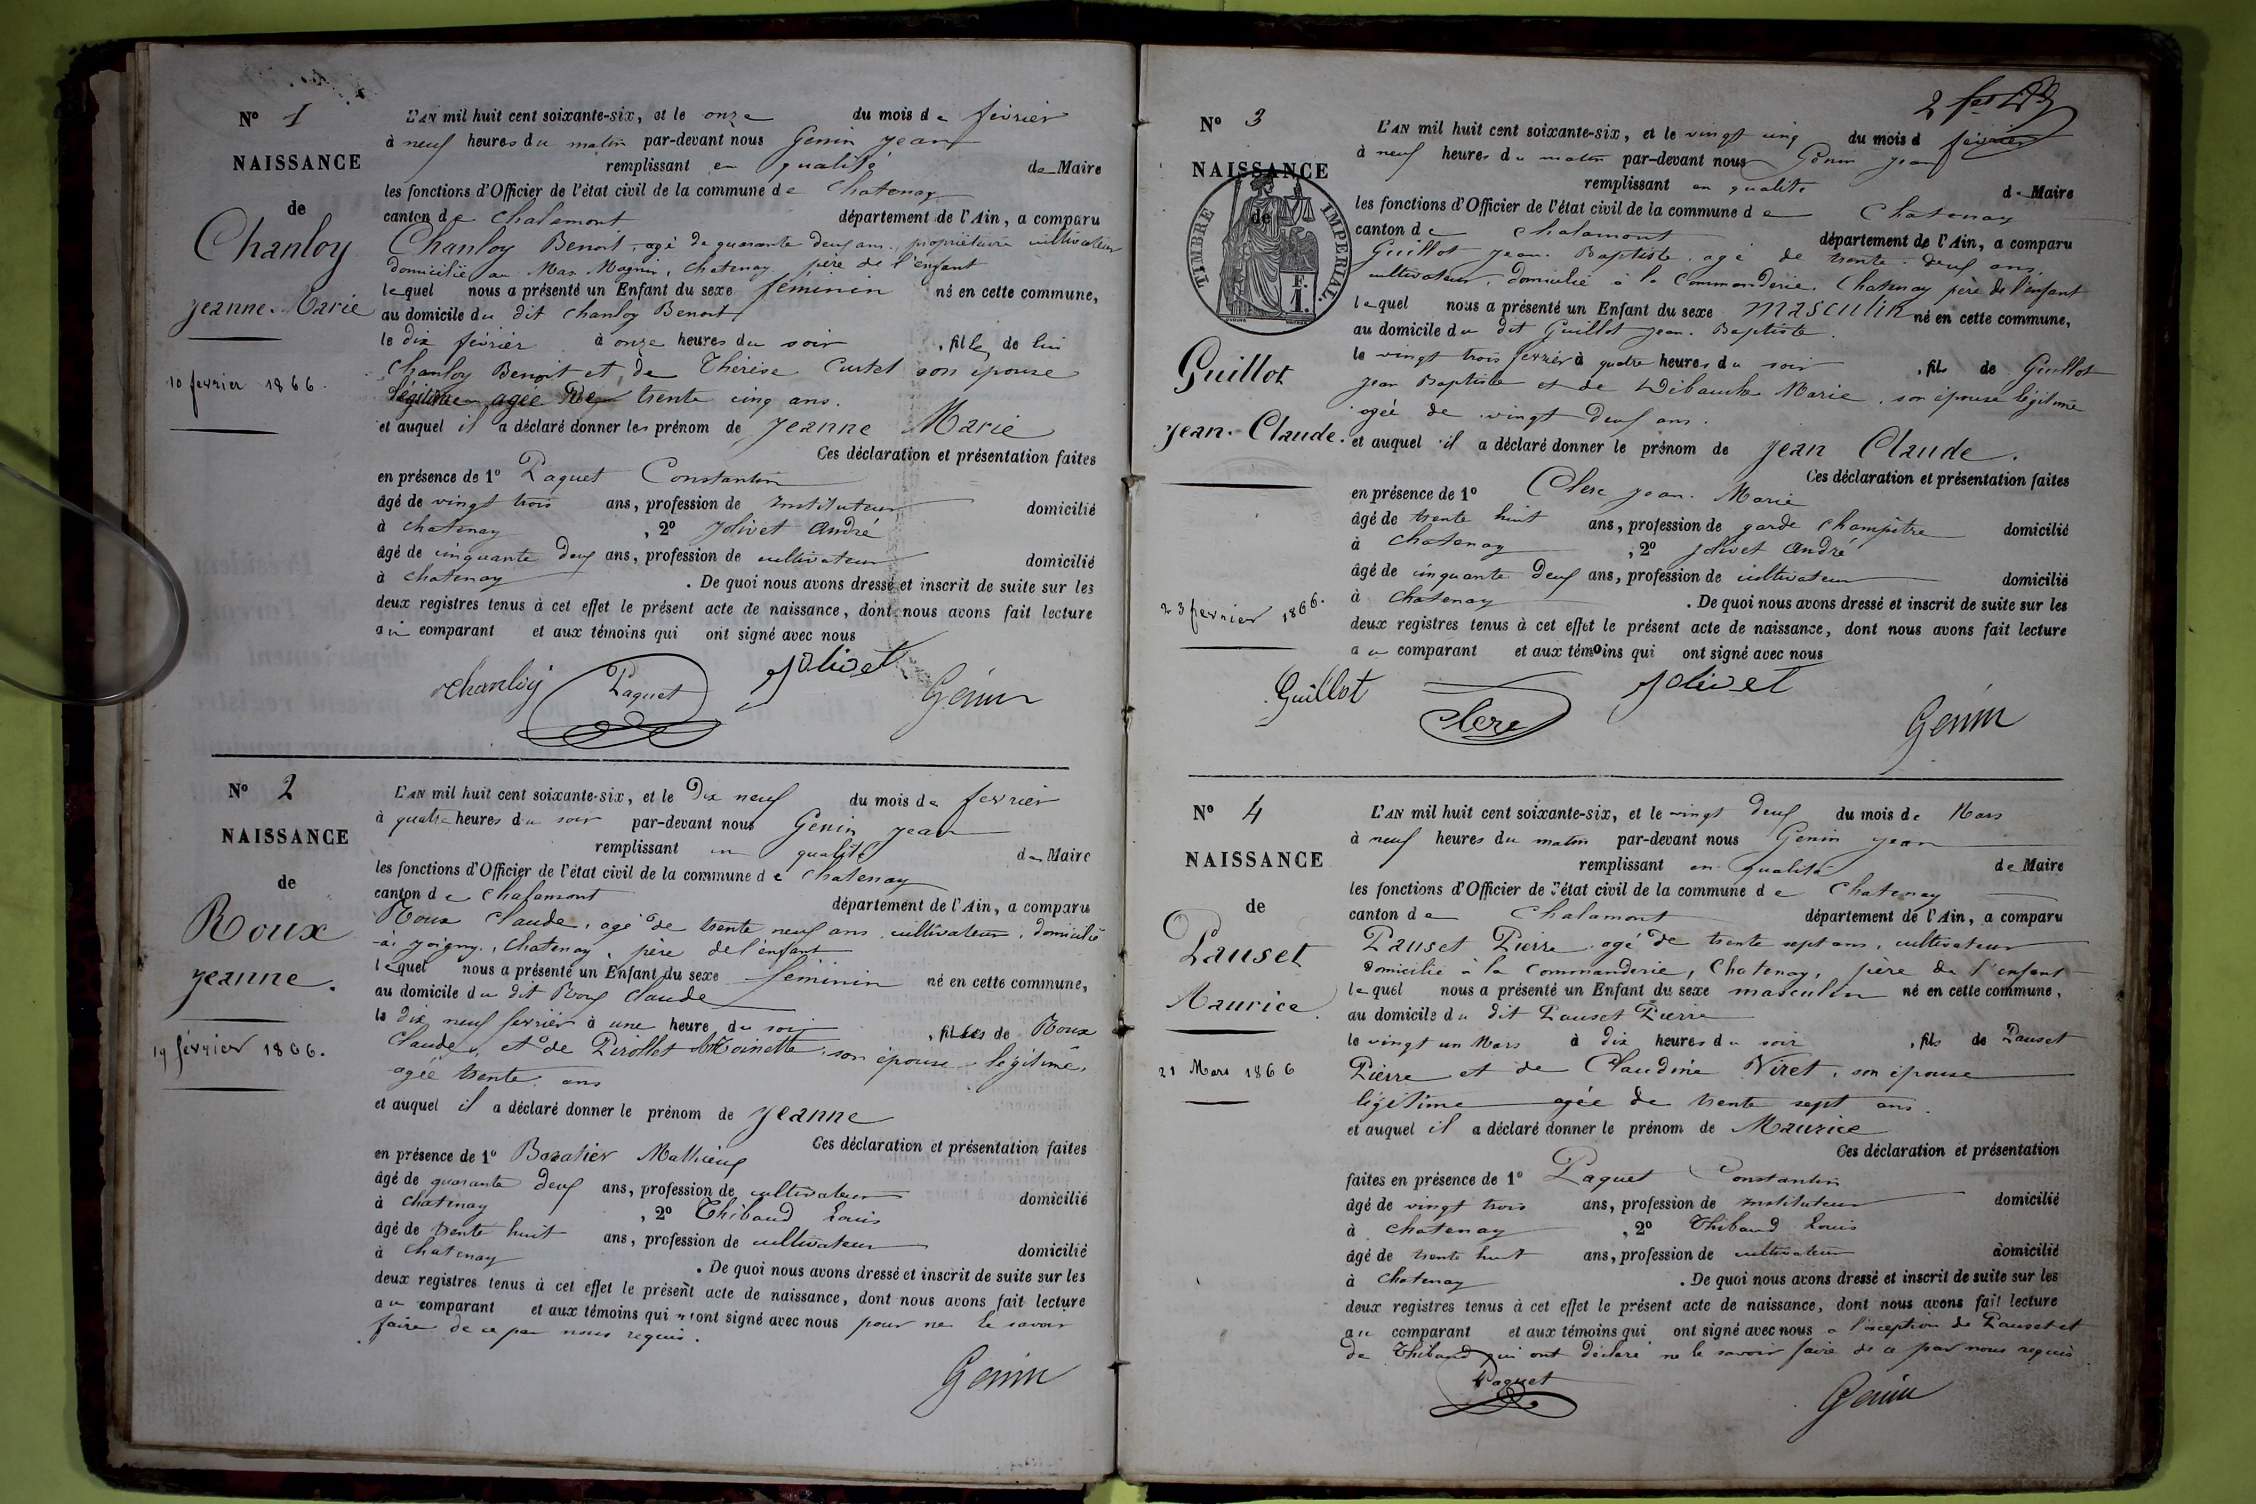 N° 1
NAISSANCE
de
Chanloy
Jeanne-Marie
10 février 1866.
L'AN mil huit cent soixante-six, et le onze du mois de février
à neuf heures du matin par-devant nous Génin Jean
remplissant en qualité de Maire
les fonctions d'Officier de l'état civil de la commune de Chatenay
canton de Chalamont département de l'Ain, a comparu
Chanloy Benoit, agé de quarante deux ans, propriétaire cultivateur
domicilié au Mas Magnin, Chatenay père de l'enfant
lequel nous a présenté un Enfant du sexe féminin né en cette commune,
au domicile du dit Chanloy Benoit
le dix février à onze heures du soir , fille de lui
Chanloy Benoit et de Thérèse Curtet son épouse
légitime agée de trente cinq ans.
et auquel il a déclaré donner les prénom de Jeanne Marie
Ces déclaration et présentation faites
en présence de 1° Paquet Constantin
âgé de vingt trois ans, profession de instituteur domicilié
à Chatenay , 2° Jolivet André
âgé de cinquante deux ans, profession de cultivateur domicilié
à Chatenay . De quoi nous avons dressé et inscrit de suite sur les
deux registres tenus à cet effet le présent acte de naissance, dont nous avons fait lecture
au comparant et aux témoins qui ont signé avec nous
Chanloy Paquet Jolivet Génin
N° 2
NAISSANCE
de
Roux
Jeanne.
19 février 1866.
L'AN mil huit cent soixante-six, et le Dix neuf du mois de février
à quatre heures du soir par-devant nous Génin Jean
remplissant en qualité de Maire
les fonctions d'Officier de l'état civil de la commune de Chatenay
canton de Chalamont département de l'Ain, a comparu
Roux Claude, agé de trente neuf ans, cultivateur, domicilié
à Joigny, Chatenay, père de l'enfant
lequel nous a présenté un Enfant du sexe féminin né en cette commune,
au domicile du dit Roux Claude
le dix neuf février à une heure du soir , filles de Roux
Claude, et de Pirollet Antoinette, son épouse légitime,
agée trente ans
et auquel il a déclaré donner le prénom de Jeanne
Ces déclaration et présentation faites
en présence de 1° Baratier Mathieu
âgé de quarante deux ans, profession de cultivateur domicilié
à Chatenay , 2° Thibaud Louis
âgé de trente huit ans, profession de cultivateur domicilié
à Chatenay . De quoi nous avons dressé et inscrit de suite sur les
deux registres tenus à cet effet le présent acte de naissance, dont nous avons fait lecture
au comparant et aux témoins qui n'ont signé avec nous pour ne le savoir
faire de ce par nous requis.
Génin
N° 3
NAISSANCE
de
TIMBRE IMPERIAL
F. 1.
Guillot
Jean-Claude.
23 février 1866.
L'AN mil huit cent soixante-six, et le vingt cinq du mois d février
à neuf heures du matin par-devant nous Génin Jean
remplissant en qualité de Maire
les fonctions d'Officier de l'état civil de la commune de Chatenay
canton de Chalamont département de l'Ain, a comparu
Guillot Jean-Baptiste agé de trente deux ans,
cultivateur, domicilié à la Commanderie, Chatenay père de l'enfant
lequel nous a présenté un Enfant du sexe masculin né en cette commune,
au domicile du dit Guillot Jean-Baptiste.
le vingt trois février à quatre heures du soir , fils de Guillot
Jean Baptiste et de Marie, son épouse légitime
agée de vingt deux ans.
et auquel il a déclaré donner le prénom de Jean Claude.
Ces déclaration et présentation faites
en présence de 1° Clerc Jean-Marie
âgé de trente huit ans, profession de garde champêtre domicilié
à Chatenay , 2° Jolivet André
âgé de cinquante deux ans, profession de cultivateur domicilié
à Chatenay . De quoi nous avons dressé et inscrit de suite sur les
deux registres tenus à cet effet le présent acte de naissance, dont nous avons fait lecture
au comparant et aux témoins qui ont signé avec nous
Guillot Clerc Jolivet Génin
N° 4
NAISSANCE
de
Pauset
Maurice.
21 Mars 1866
L'AN mil huit cent soixante-six, et le vingt deux du mois de Mars
à neuf heures du matin par-devant nous Génin Jean
remplissant en qualité de Maire
les fonctions d'Officier de l'état civil de la commune de Chatenay
canton de Chalamont département de l'Ain, a comparu
Pauset Pierre agé de trente sept ans, cultivateur
domicilié à la Commanderie, Chatenay, père de l'enfant
lequel nous a présenté un Enfant du sexe masculin né en cette commune,
au domicile du dit Pauset Pierre
le vingt un Mars à dix heures du soir , fils de Pauset
Pierre et de Claudine Viret, son épouse
légitime agée de trente sept ans.
et auquel il a déclaré donner le prénom de Maurice
Ces déclaration et présentation
faites en présence de 1° Paquet Constantin
âgé de vingt trois ans, profession de instituteur domicilié
à Chatenay , 2° Thibaud Louis
âgé de trente huit ans, profession de cultivateur domicilié
à Chatenay . De quoi nous avons dressé et inscrit de suite sur les
deux registres tenus à cet effet le présent acte de naissance, dont nous avons fait lecture
au comparant et aux témoins qui ont signé avec nous à l'exception de Pauset et
de Thibaud qui ont déclaré ne le savoir faire de ce par nous requis
Paquet Génin